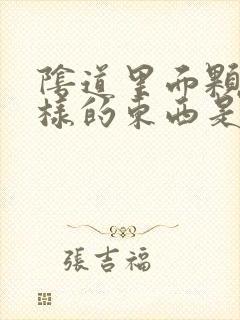 陰道里两顆
樣的东西是
張吉福